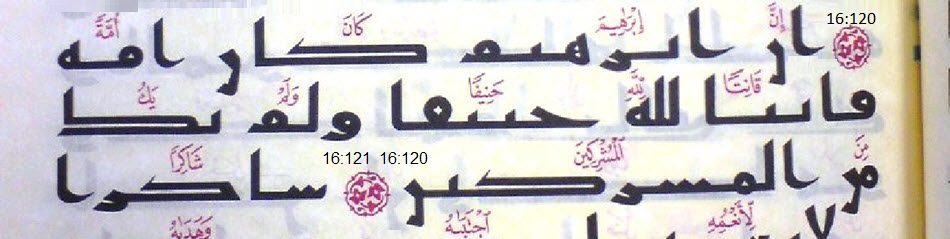 16:120 إِنَّ إِبْرَٰهِيمَ كَانَ أُمَّةً
ان ابرهيم كان امه
قَانِتًا لِّلَّهِ حَنِيفًا وَلَمْ يَكُ
قانتا لله حنيفا ولم يك
مِنَ الْمُشْرِكِينَ 16:120 16:121 شَاكِرًا
من المشركين شاكرا
لِّأَنْعُمِهِ اجْتَبَىٰهُ وَهَدَىٰهُ